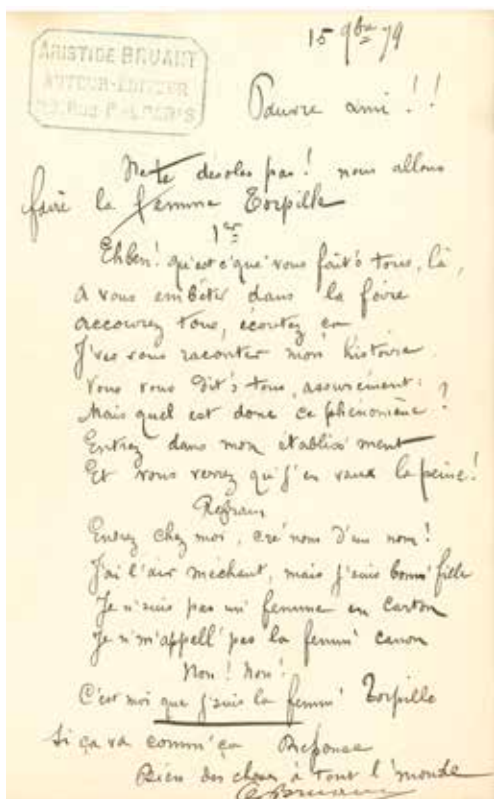 ARISTIDE BRUANT
AUTEUR-ÉDITEUR
15 9bre 79
Pauvre ami !!
Ne te désoles pas! nous allons
faire la femme Torpille
1er
Eh ben! qu'est c'que vous fait's tous, là,
A vous embêter dans la foire
accourez tous, écoutez ça
J'vas vous raconter mon histoire
Vous vous dit's tous, assurément:
Mais quel est donc ce phénomène?
Entrez dans mon établiss'ment
Et vous verrez qu'j'en vaux la peine!
Refrain
Entrez chez moi, cré nom d'un nom!
J'ai l'air méchant, mais j'suis bonn' fille
Je n'suis pas un' femme en carton
Je n'm'appell' pas la femm' canon
Non! Non!
C'est moi que j'suis la femm' Torpille
Si ça va comm' ça Réponse
Bien des choses à tout l'monde
Bruant